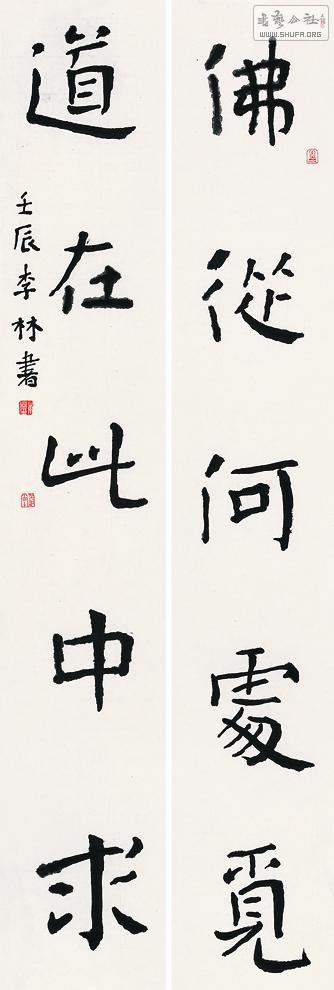 佛從何處覓
道在此中求
壬辰李林書
書藝公社
WWW.SHUFA.ORG